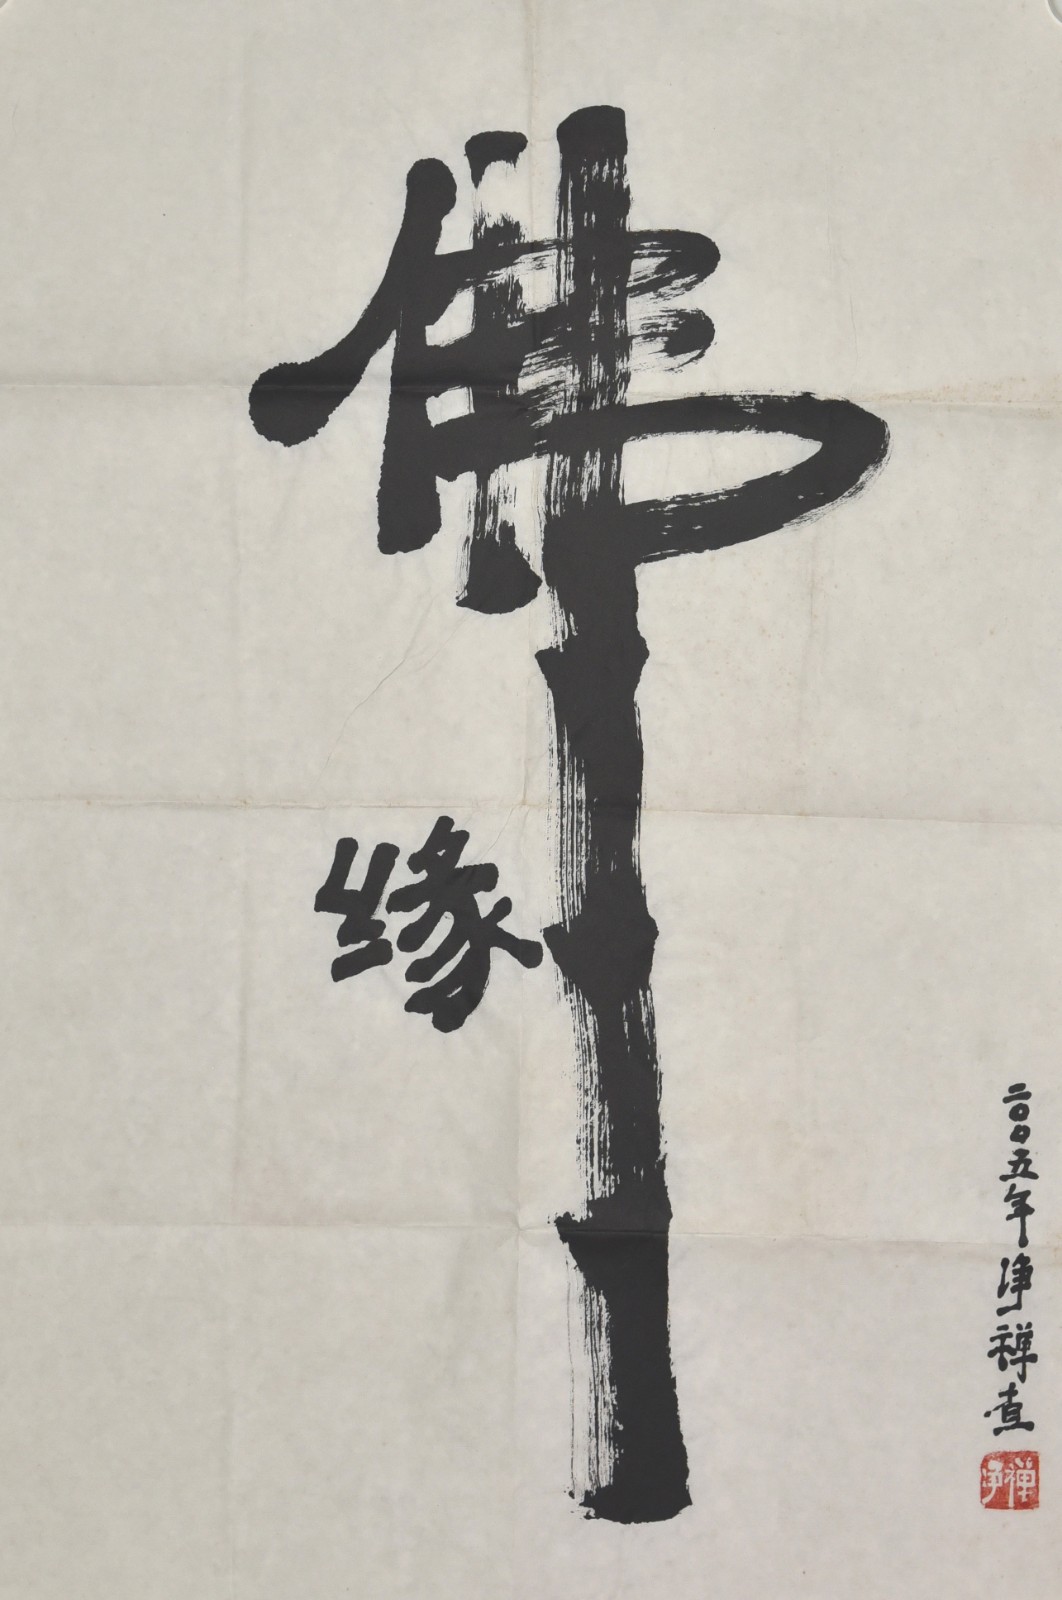 佛
缘
二〇〇五年净禅書
禅净